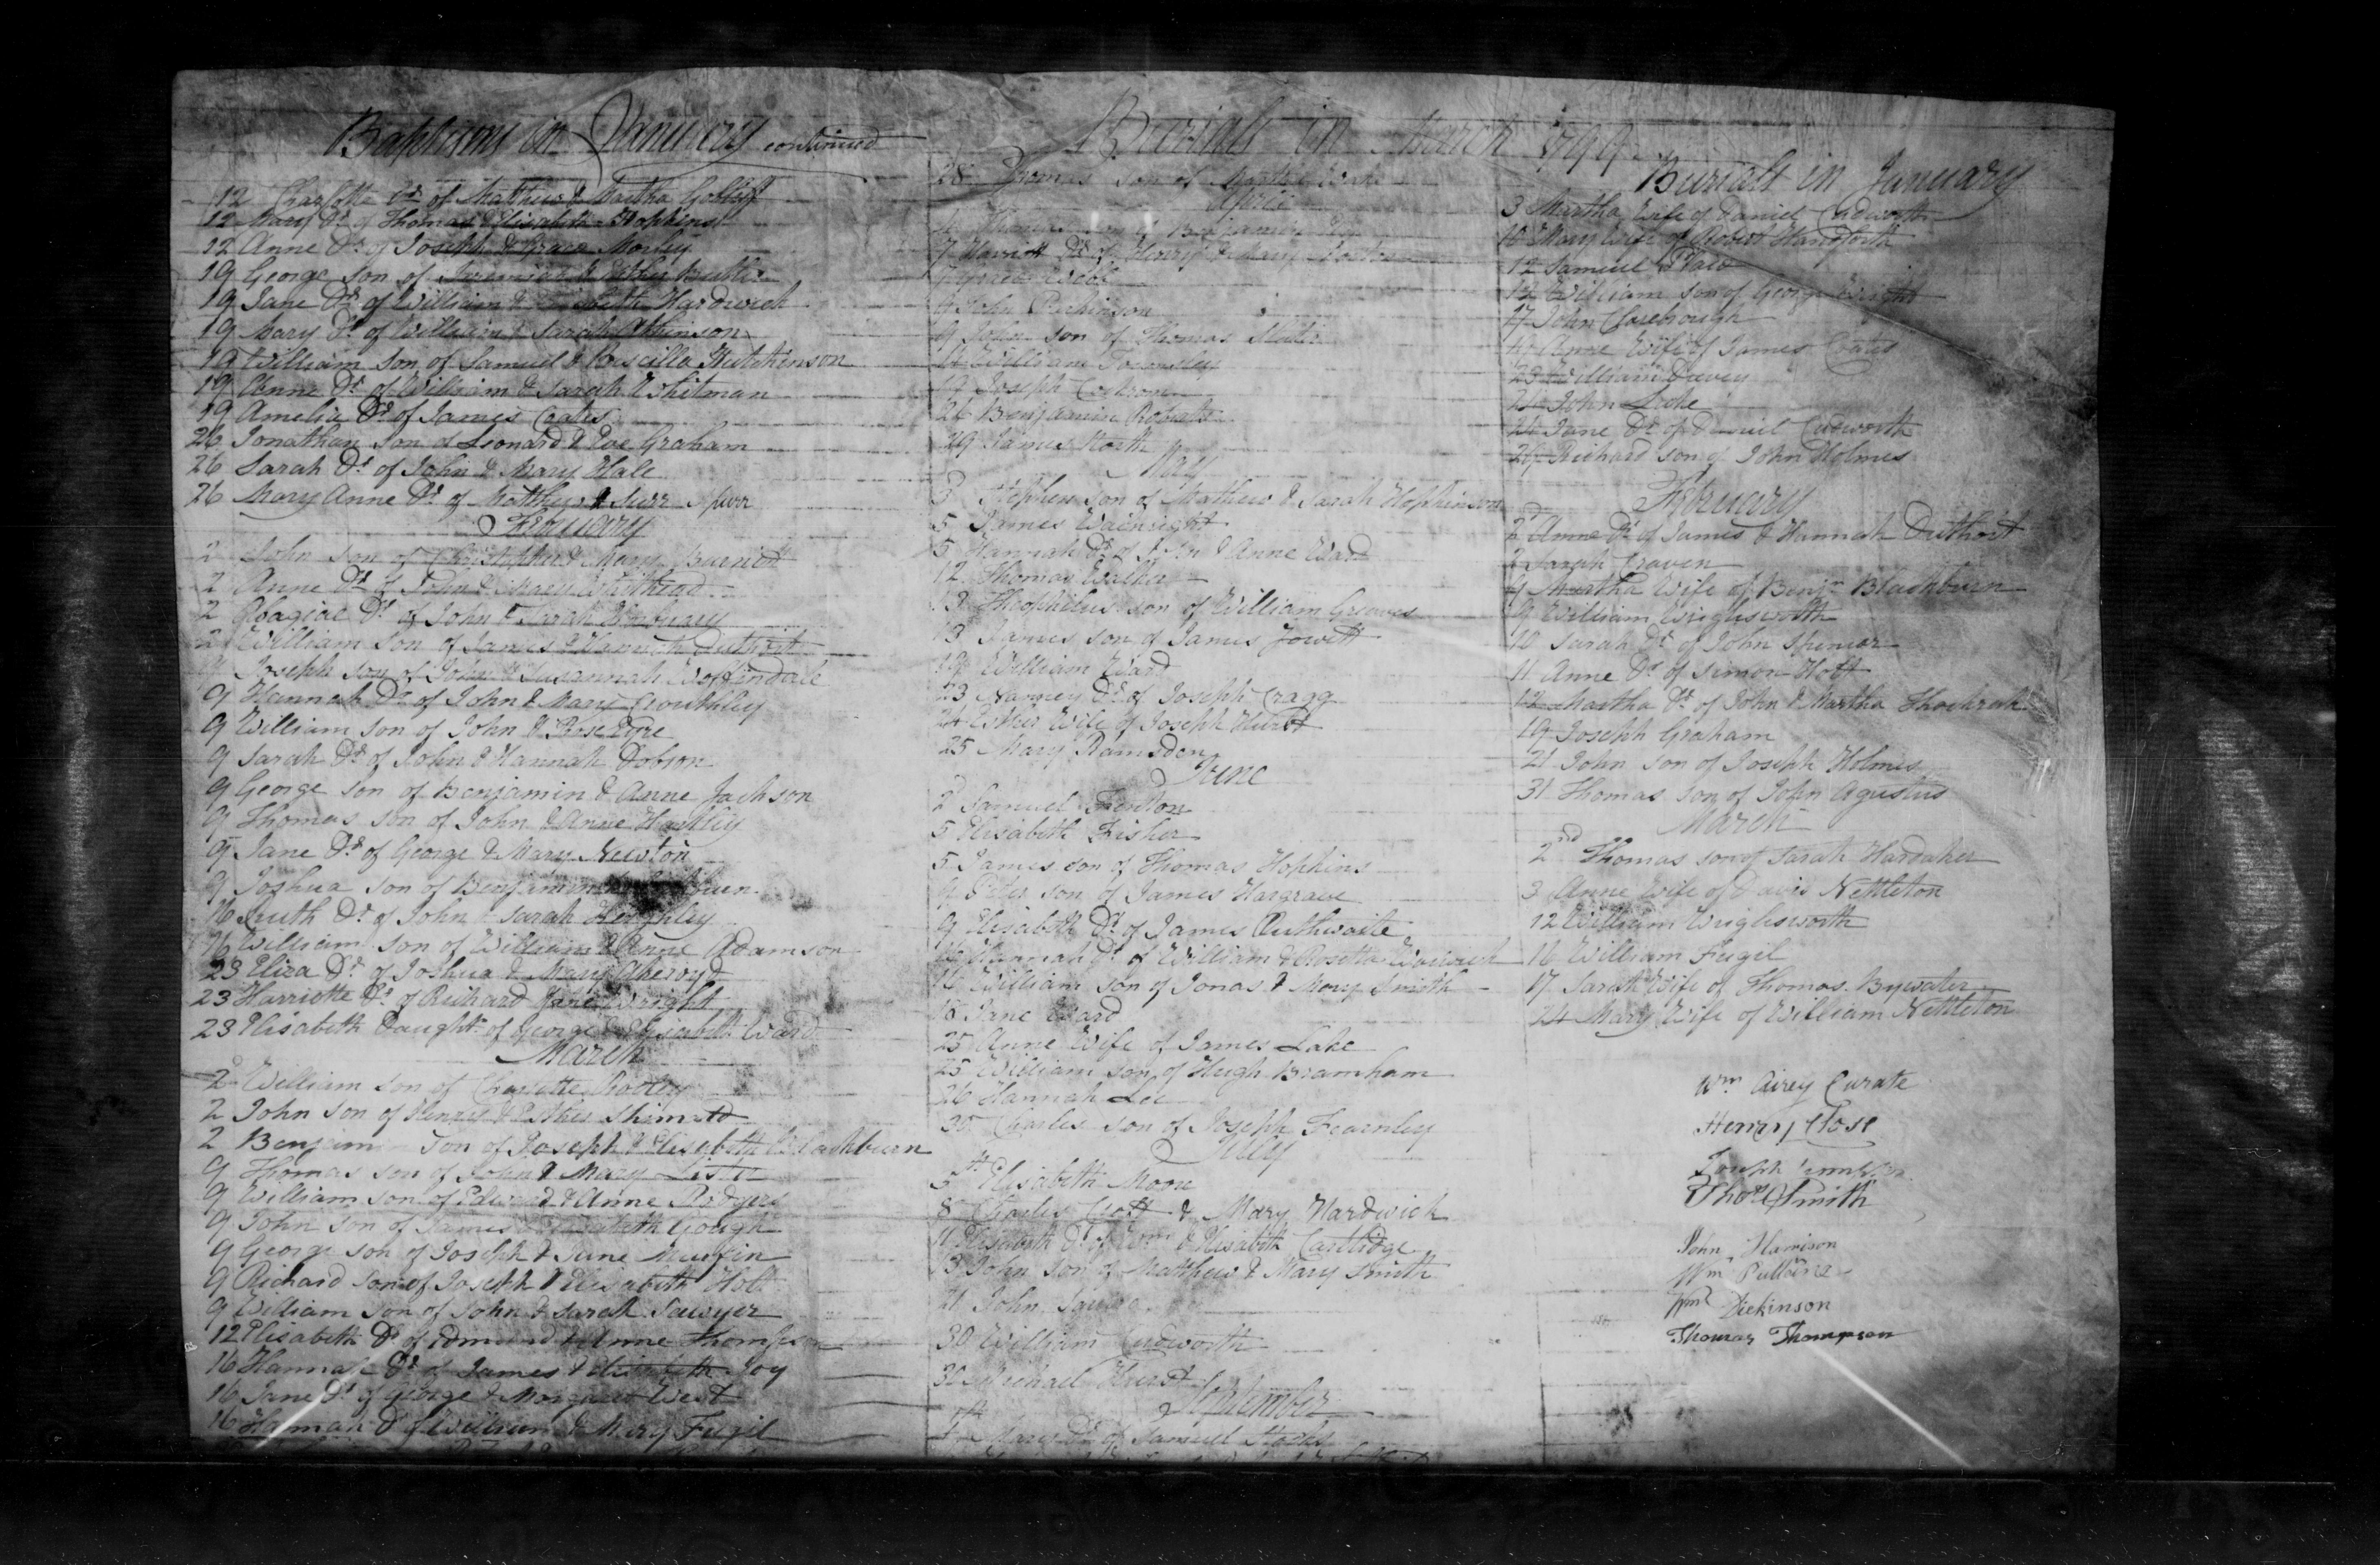 Baptisms in January continued
12 Charlotte Dr. of Matthew & Martha
12 Mary Dr. of Thomas & Elisabeth Hopkins
12 Anne Dr. of Joseph & Grace Morley
19 George son of Jeremiah & Butler
19 Jane Dr. of William & Hardwick
19 Mary Dr. of William & Sarah Atkinson
19 William son of Samuel & Priscilla Hutchinson
19 Anne Dr. of William & Sarah Whitman
19 Amelia Dr. of James Coates
26 Jonathan son of Leonard & Eve Graham
26 Sarah Dr. of John & Mary Hale
26 Mary Anne Dr. of Matthew & Spurr
February
2 John son of Christopher & Mary
2 Anne Dr. of John & Mary Whithead
2 Dr. of John & Sarah
2 William son of James & Hannah Duthoit
9 Joseph son of John & Susannah Woffindale
9 Hannah Dr. of John & Mary
9 William son of John & Rose Eyre
9 Sarah Dr. of John & Hannah Dobson
9 George son of Benjamin & Anne Jackson
9 Thomas son of John & Anne Hartley
9 Jane Dr. of George & Mary Newton
9 Joshua son of Benjamin
16 Ruth Dr. of John & Sarah
16 William son of William & Anne Adamson
23 Eliza Dr. of Joshua & Mary Akeroyd
23 Harriotte Dr. of Richard Jane Wright
23 Elisabeth Daughtr. of George & Elisabeth Ward
March
2 William son of Charlotte
2 John son of Henry & Esther
2 Benjamin son of Joseph & Elisebeth Blackburn
9 Thomas son of John & Mary Lister
9 William son of Edward & Anne Rodgers
9 John son of James & Elisabeth Gough
9 George son of Joseph & Jane
9 Richard son of Joseph & Elisabeth Holt
9 William son of John & Sarah Sawyer
12 Elisabeth Dr. of Edmund & Anne Thompson
16 Hannah Dr. of James & Elisabeth Joy
16 Jane Dr. of George & Margaret West
16 Hannah Dr. of William & Mary Fugil
Burials in March 1799
28 Thomas son of
April
Thomas son of Benjamin
7 Harriott Dr. of Henry & Mary
7 Grace Webb
9 John Parkinson
9 John son of Thomas
William Townsley
19 Joseph
26 Benjamin Roberts
29 James North
May
3 Stephen son of Mathew & Sarah Hopkinson
5 James Wainright
5 Hannah Dr. of John & Anne Ward
12 Thomas Walker
13 Theophilus son of William Greaves
13 James son of James Jowett
19 William Ward
23 Nanney Dr. of Joseph Cragg
24 Esther Wife of Joseph Hurst
25 Mary Ramsden
June
2 Samuel Fenton
5 Elisabeth Fisher
5 James son of Thomas Hopkins
9 Peter son of James Hargrave
9 Elisabeth Dr. of James Outhwaite
Hannah Dr. of William & Rosetta
16 William son of Jonas & Mary Smith
18 Jane Ward
25 Anne Wife of James Lake
25 William son of Hugh Bramham
26 Hannah Lee
30 Charles son of Joseph Fearnley
July
5th Elisabeth Moore
8 Charles & Mary Hardwick
11 Elisabeth Dr. of Wm & Elisabeth Cartlidge
13 John son of Matthew & Mary Smith
21 John Squire
30 William Cudworth
30 Michael Hurst
September
Mary Dr. of Samuel
Burials in January
3 Martha Wife of Daniel Cudworth
10 Mary Wife of Robert Handforth
12 Samuel
12 William son of George Wright
17 John Clarebrough
Anne Wife of James Coates
23 William Davey
John Lake
Jane Dr. of Daniel Cudworth
Richard son of John Holmes
February
2d Anne Dr. of James & Hannah Duthoit
2 Sarah Craven
9 Martha Wife of Benjn. Blackburn
9 William Wriglesworth
10 Sarah Dr. of John Spencer
11 Anne Dr. of Simon Holt
12 Martha Dr. of John & Martha Thackrah
19 Joseph Graham
21 John son of Joseph Holmes
31 Thomas son of John Agustus
March
2nd Thomas son of Sarah Hardaker
3 Anne Wife of David Nettleton
12 William Wriglesworth
16 William Fugil
17 Sarah Wife of Thomas Bywater
24 Mary Wife of William Nettleton
Wm Airey Curate
Henry Close
Joseph
Thos Smith
John Harrison
Wm Pulleine
Wm Dickinson
Thomas Thompson